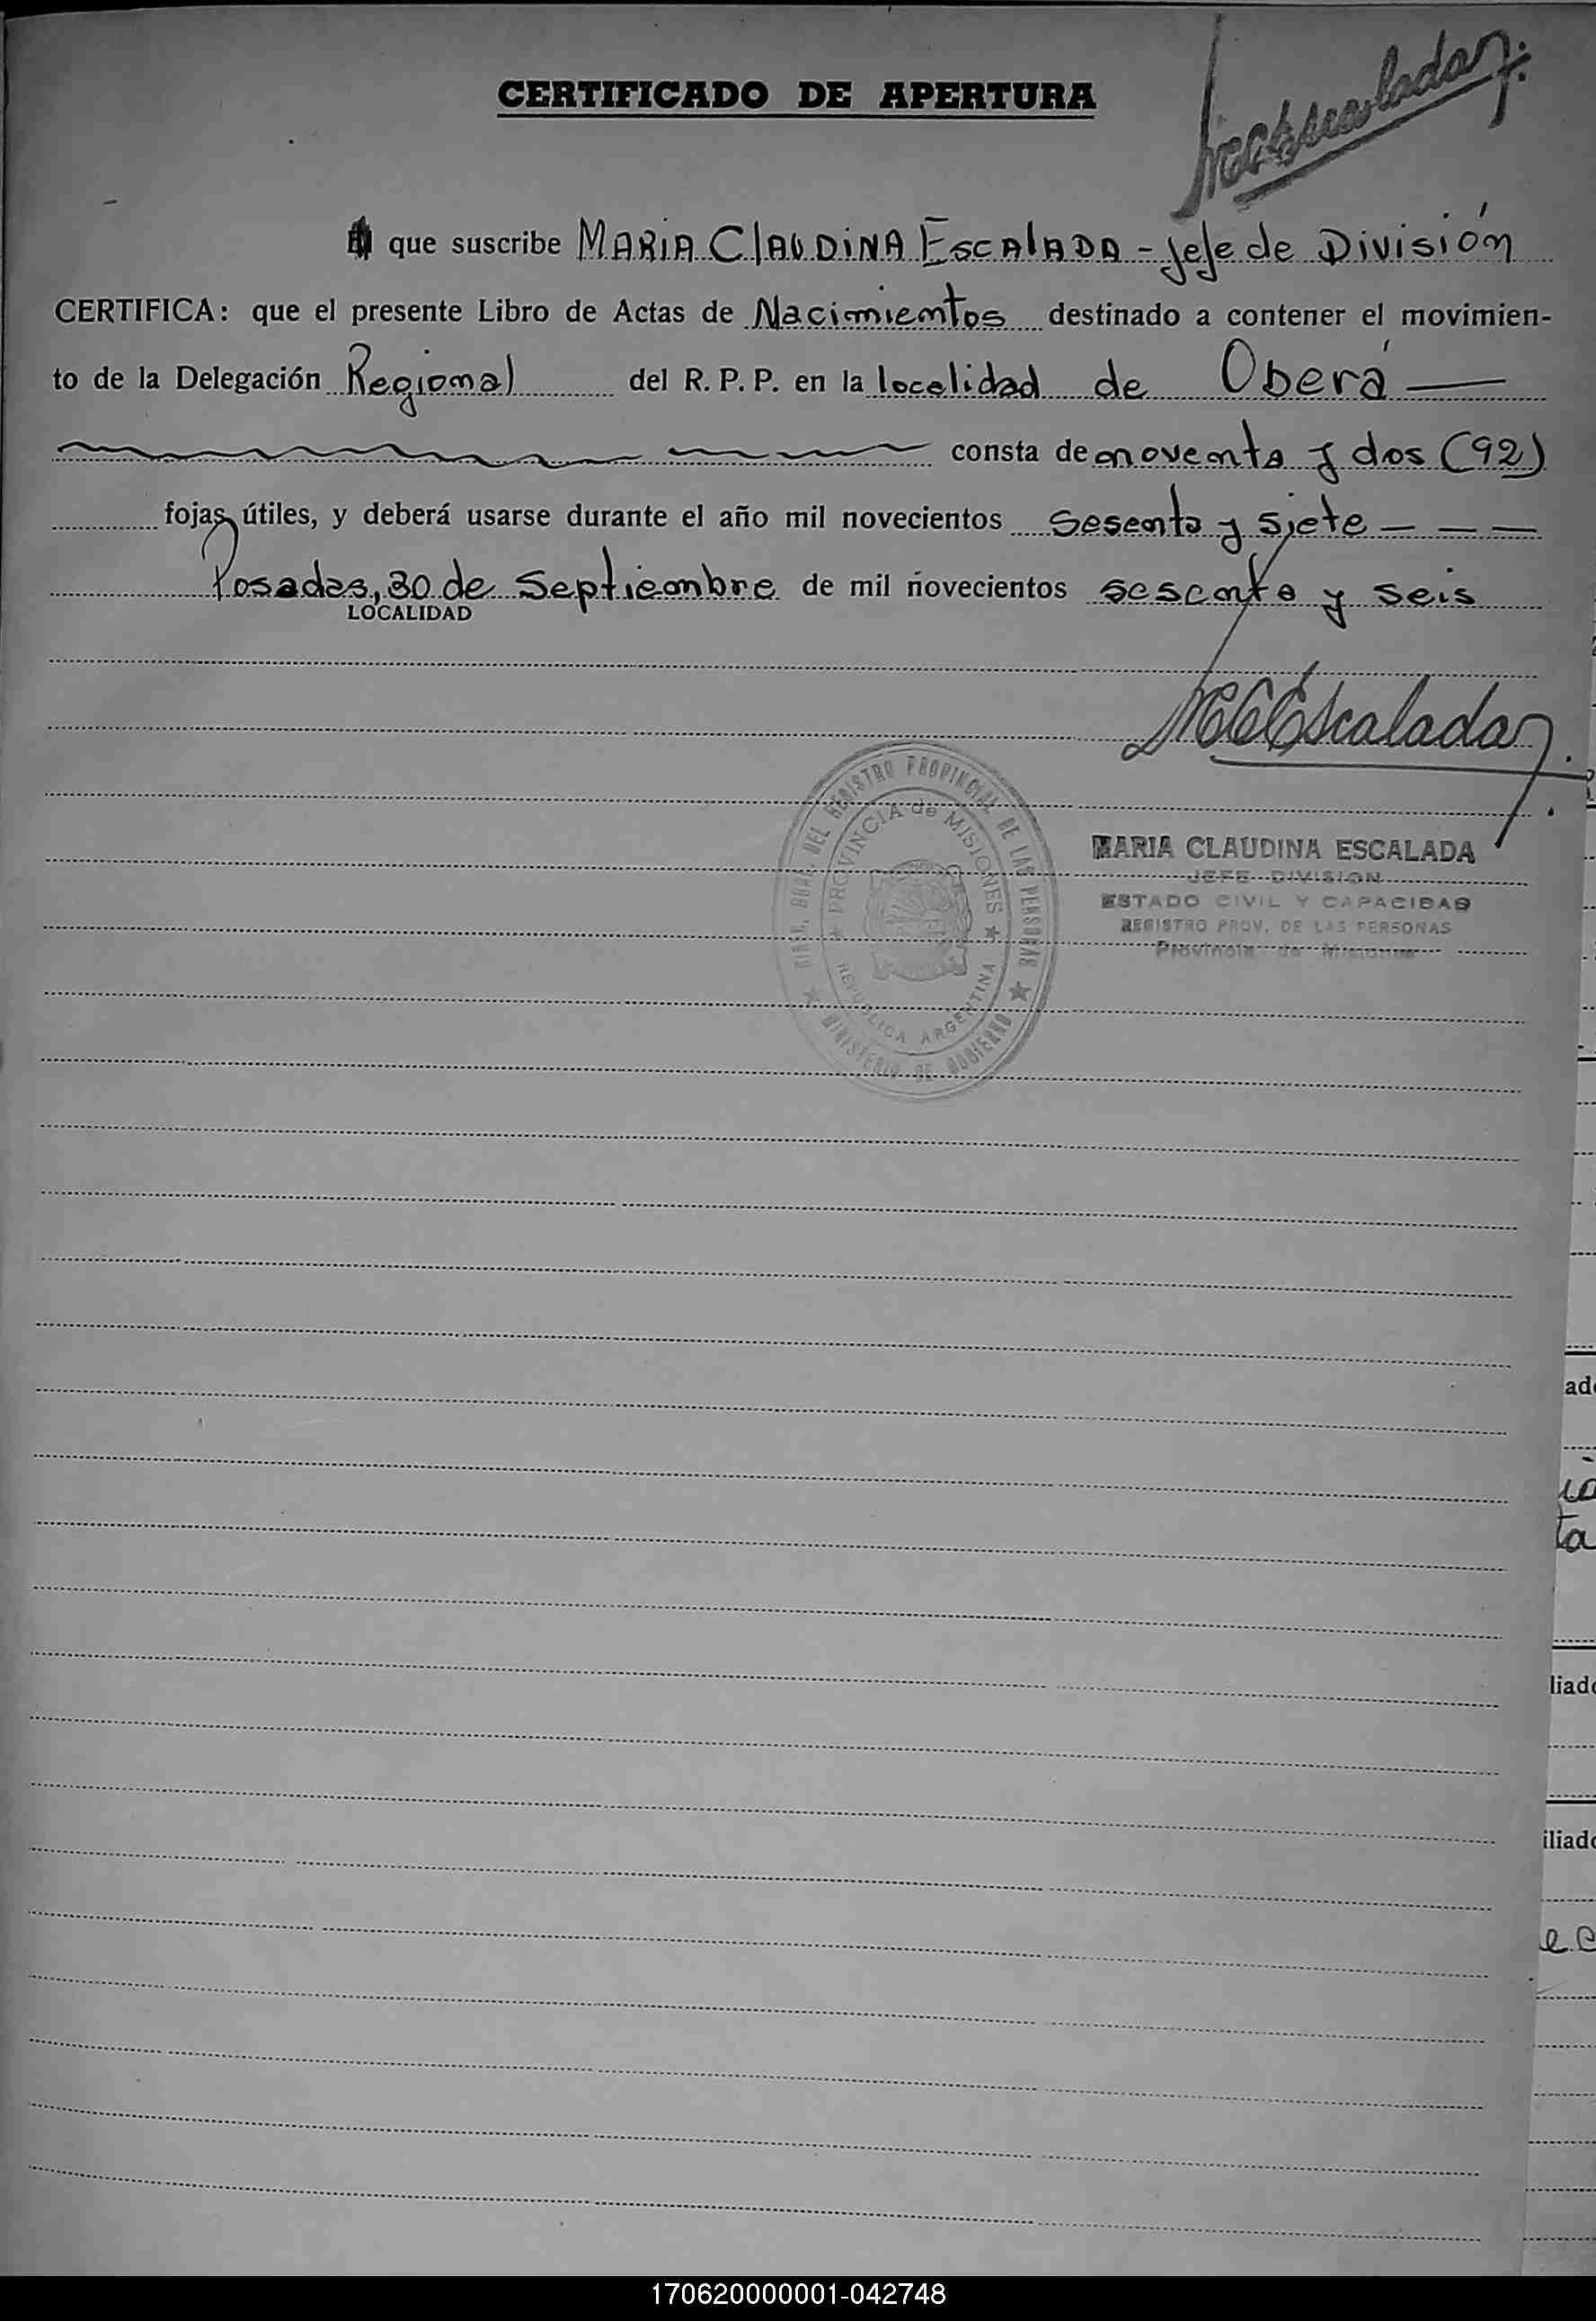 CERTIFICADO DE APERTURA
MCEscalada
que suscribe MARIA ClAUDINA EscAlADA - Jefe de División
CERTIFICA: que el presente Libro de Actas de Nacimientos destinado a contener el movimien-
to de la Delegación Regional del R. P. P. en la localidad de Oberá
consta de noventa y dos (92)
fojas útiles, y deberá usarse durante el año mil novecientos sesenta y siete - - -
Posadas, 30 de Septiembre de mil novecientos sesenta y seis
LOCALIDAD
MCEscalada
MARIA CLAUDINA ESCALADA
JEFE DIVISION
ESTADO CIVIL Y CAPACIDAD
REGISTRO PROV. DE LAS PERSONAS
Provincia de Misiones
DIREC. GRAL. DEL REGISTRO PROVINCIAL DE LAS PERSONAS
MINISTERIO DE GOBIERNO
PROVINCIA de MISIONES
REPUBLICA ARGENTINA
ad
ia
ta
liado
iliado
e c
170620000001-042748